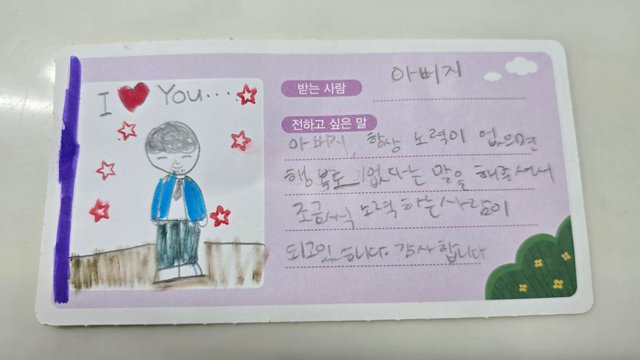 I ♥ You...
받는 사람
아버지
전하고 싶은 말
아버지, 항상 노력이 없으면
행복도 없다는 말을 해주셔서
조금씩 노력하는 사람이
되고있습니다. 감사합니다